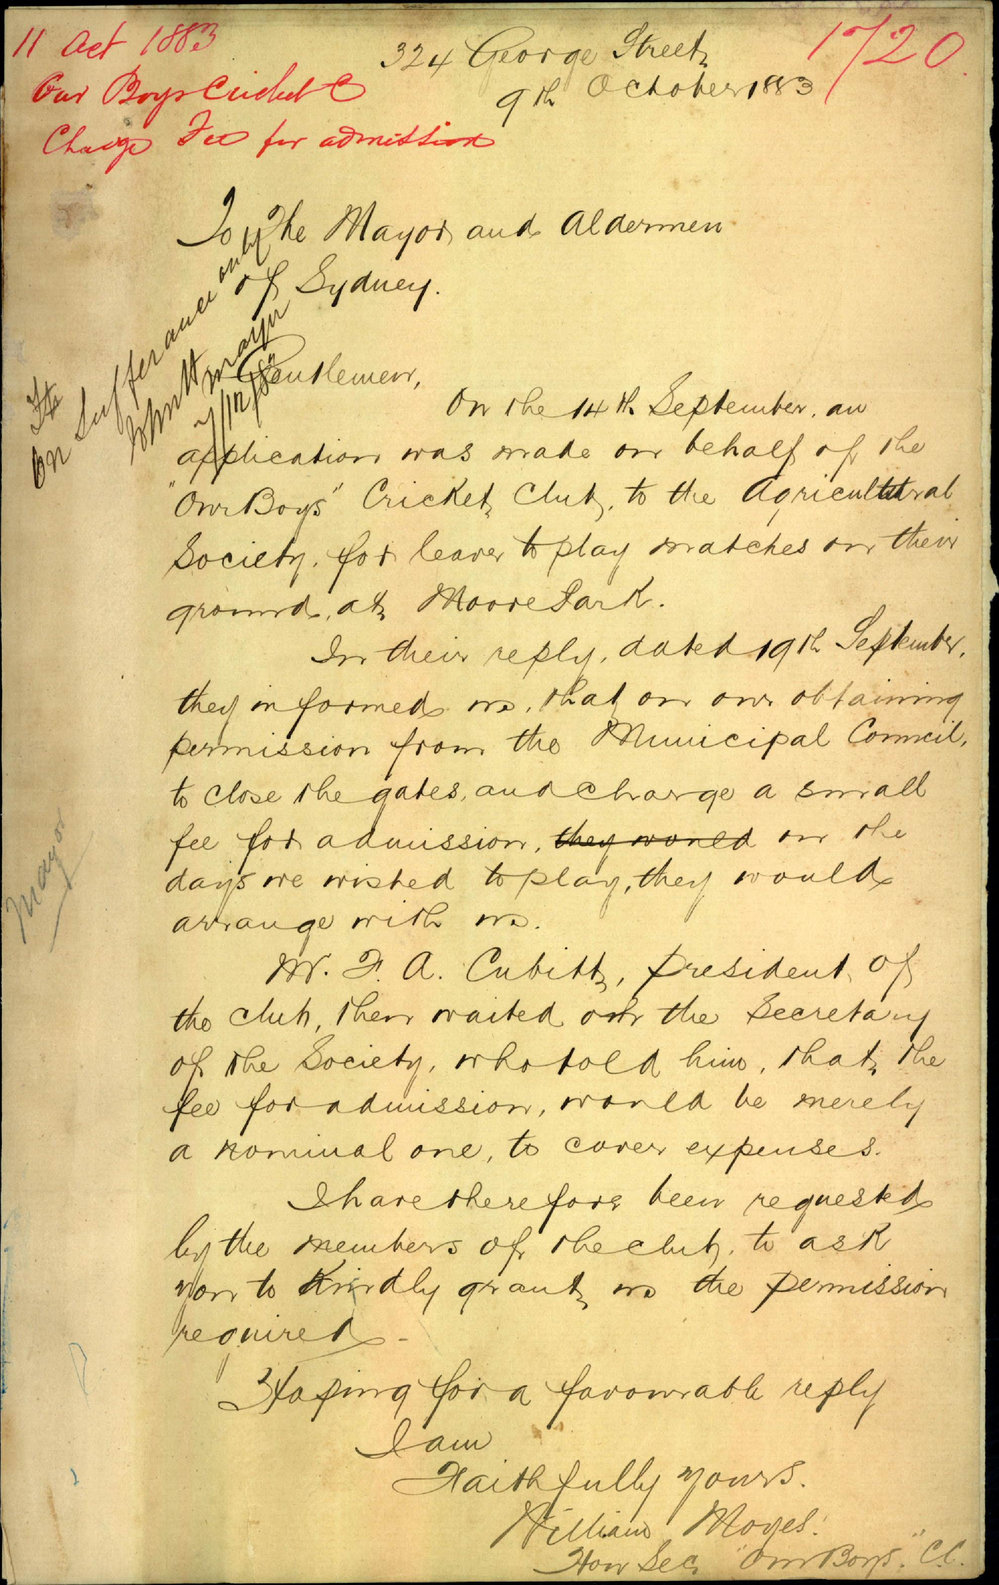 11 Oct 1883
Our Boys Cricket C
Charge Fee for admission
1720.
324 George Street,
9th October 1883
To The Mayor and Aldermen
of Sydney.
On Sufferance only
Mayor
Gentlemen,
On the 14th September, an
application was made on behalf of the
"Our Boys" Cricket Club, to the Agricultural
Society, for leave to play matches on their
ground, at Moore Park.
In their reply, dated 19th September,
they informed us, that on our obtaining
permission from the Municipal Council,
to close the gates, and charge a small
fee for admission, they would on the
days we wished to play, they would
arrange with us.
Mr. F. A. Cubitt, president of
the club, then waited on the Secretary
of the Society, who told him, that, the
fee for admission, would be merely
a nominal one, to cover expenses.
I have therefore been requested
by the members of the club, to ask
you to kindly grant us the permission
required -
Hoping for a favourable reply
I am
Faithfully yours.
William Moyes.
Hon Sec, "Our Boys". C.C.
Mayor